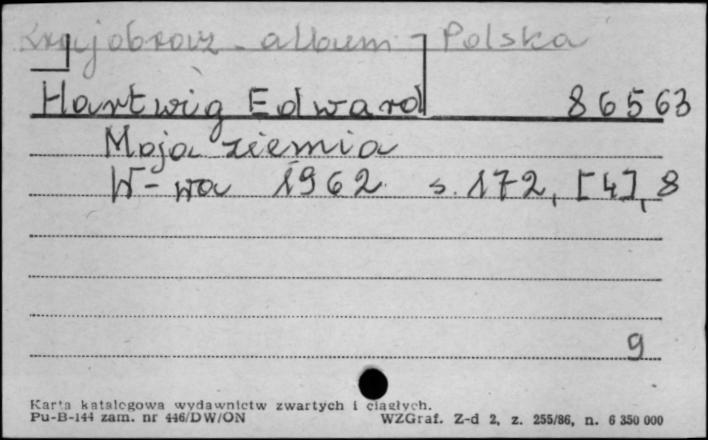 Krajobraz - album - Polska
Hartwig Edward 86563
Moja ziemia
W-wa 1962 s. 172, [4], 8
9
Karta katalogowa wydawnictw zwartych i ciągłych.
Pu-B-144 zam. nr 446/DW/ON WZGraf. Z-d 2, z. 255/86, n. 6 350 000